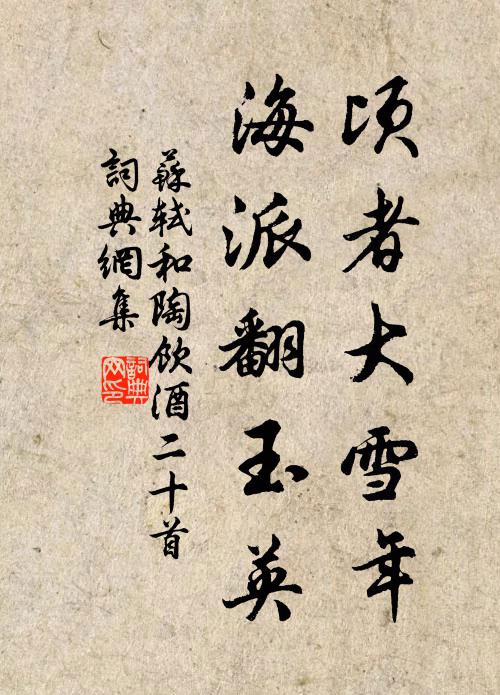 頃者大雪年
海派翻玉英
蘇軾和陶飲酒二十首
詞典網集
詞典網印